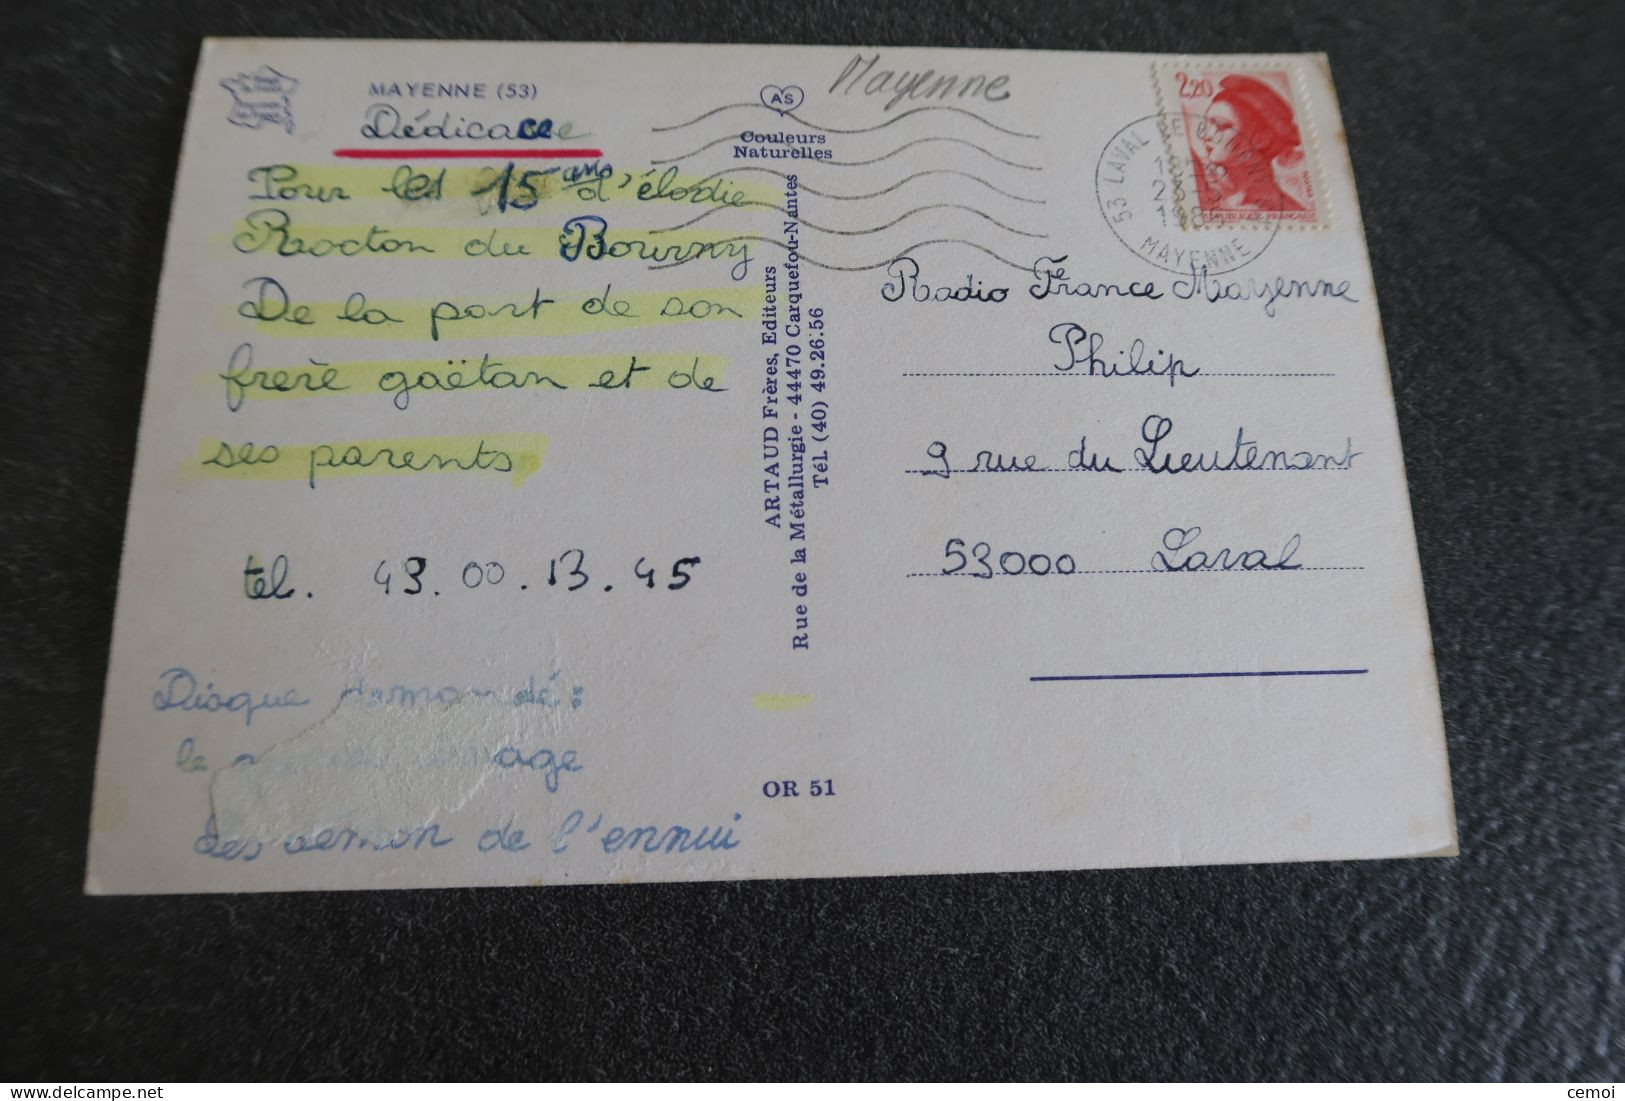 MAYENNE (53)
Dédicace
Pour les 15 ans d'élodie
Racton du Bourny
De la part de son
frère gaëtan et de
ses parents
tel. 43.00.13.45
Disque demandé :
le
des démon de l'ennui
AS
Couleurs
Naturelles
ARTAUD Frères, Editeurs
Rue de la Métallurgie - 44470 Carquefou-Nantes
Tél. (40) 49.26.56
OR 51
Mayenne
2,20
REPUBLIQUE FRANCAISE
53 LAVAL
MAYENNE
Radio France Mayenne
Philip
9 rue du Lieutenant
53000 Laval
cemoi